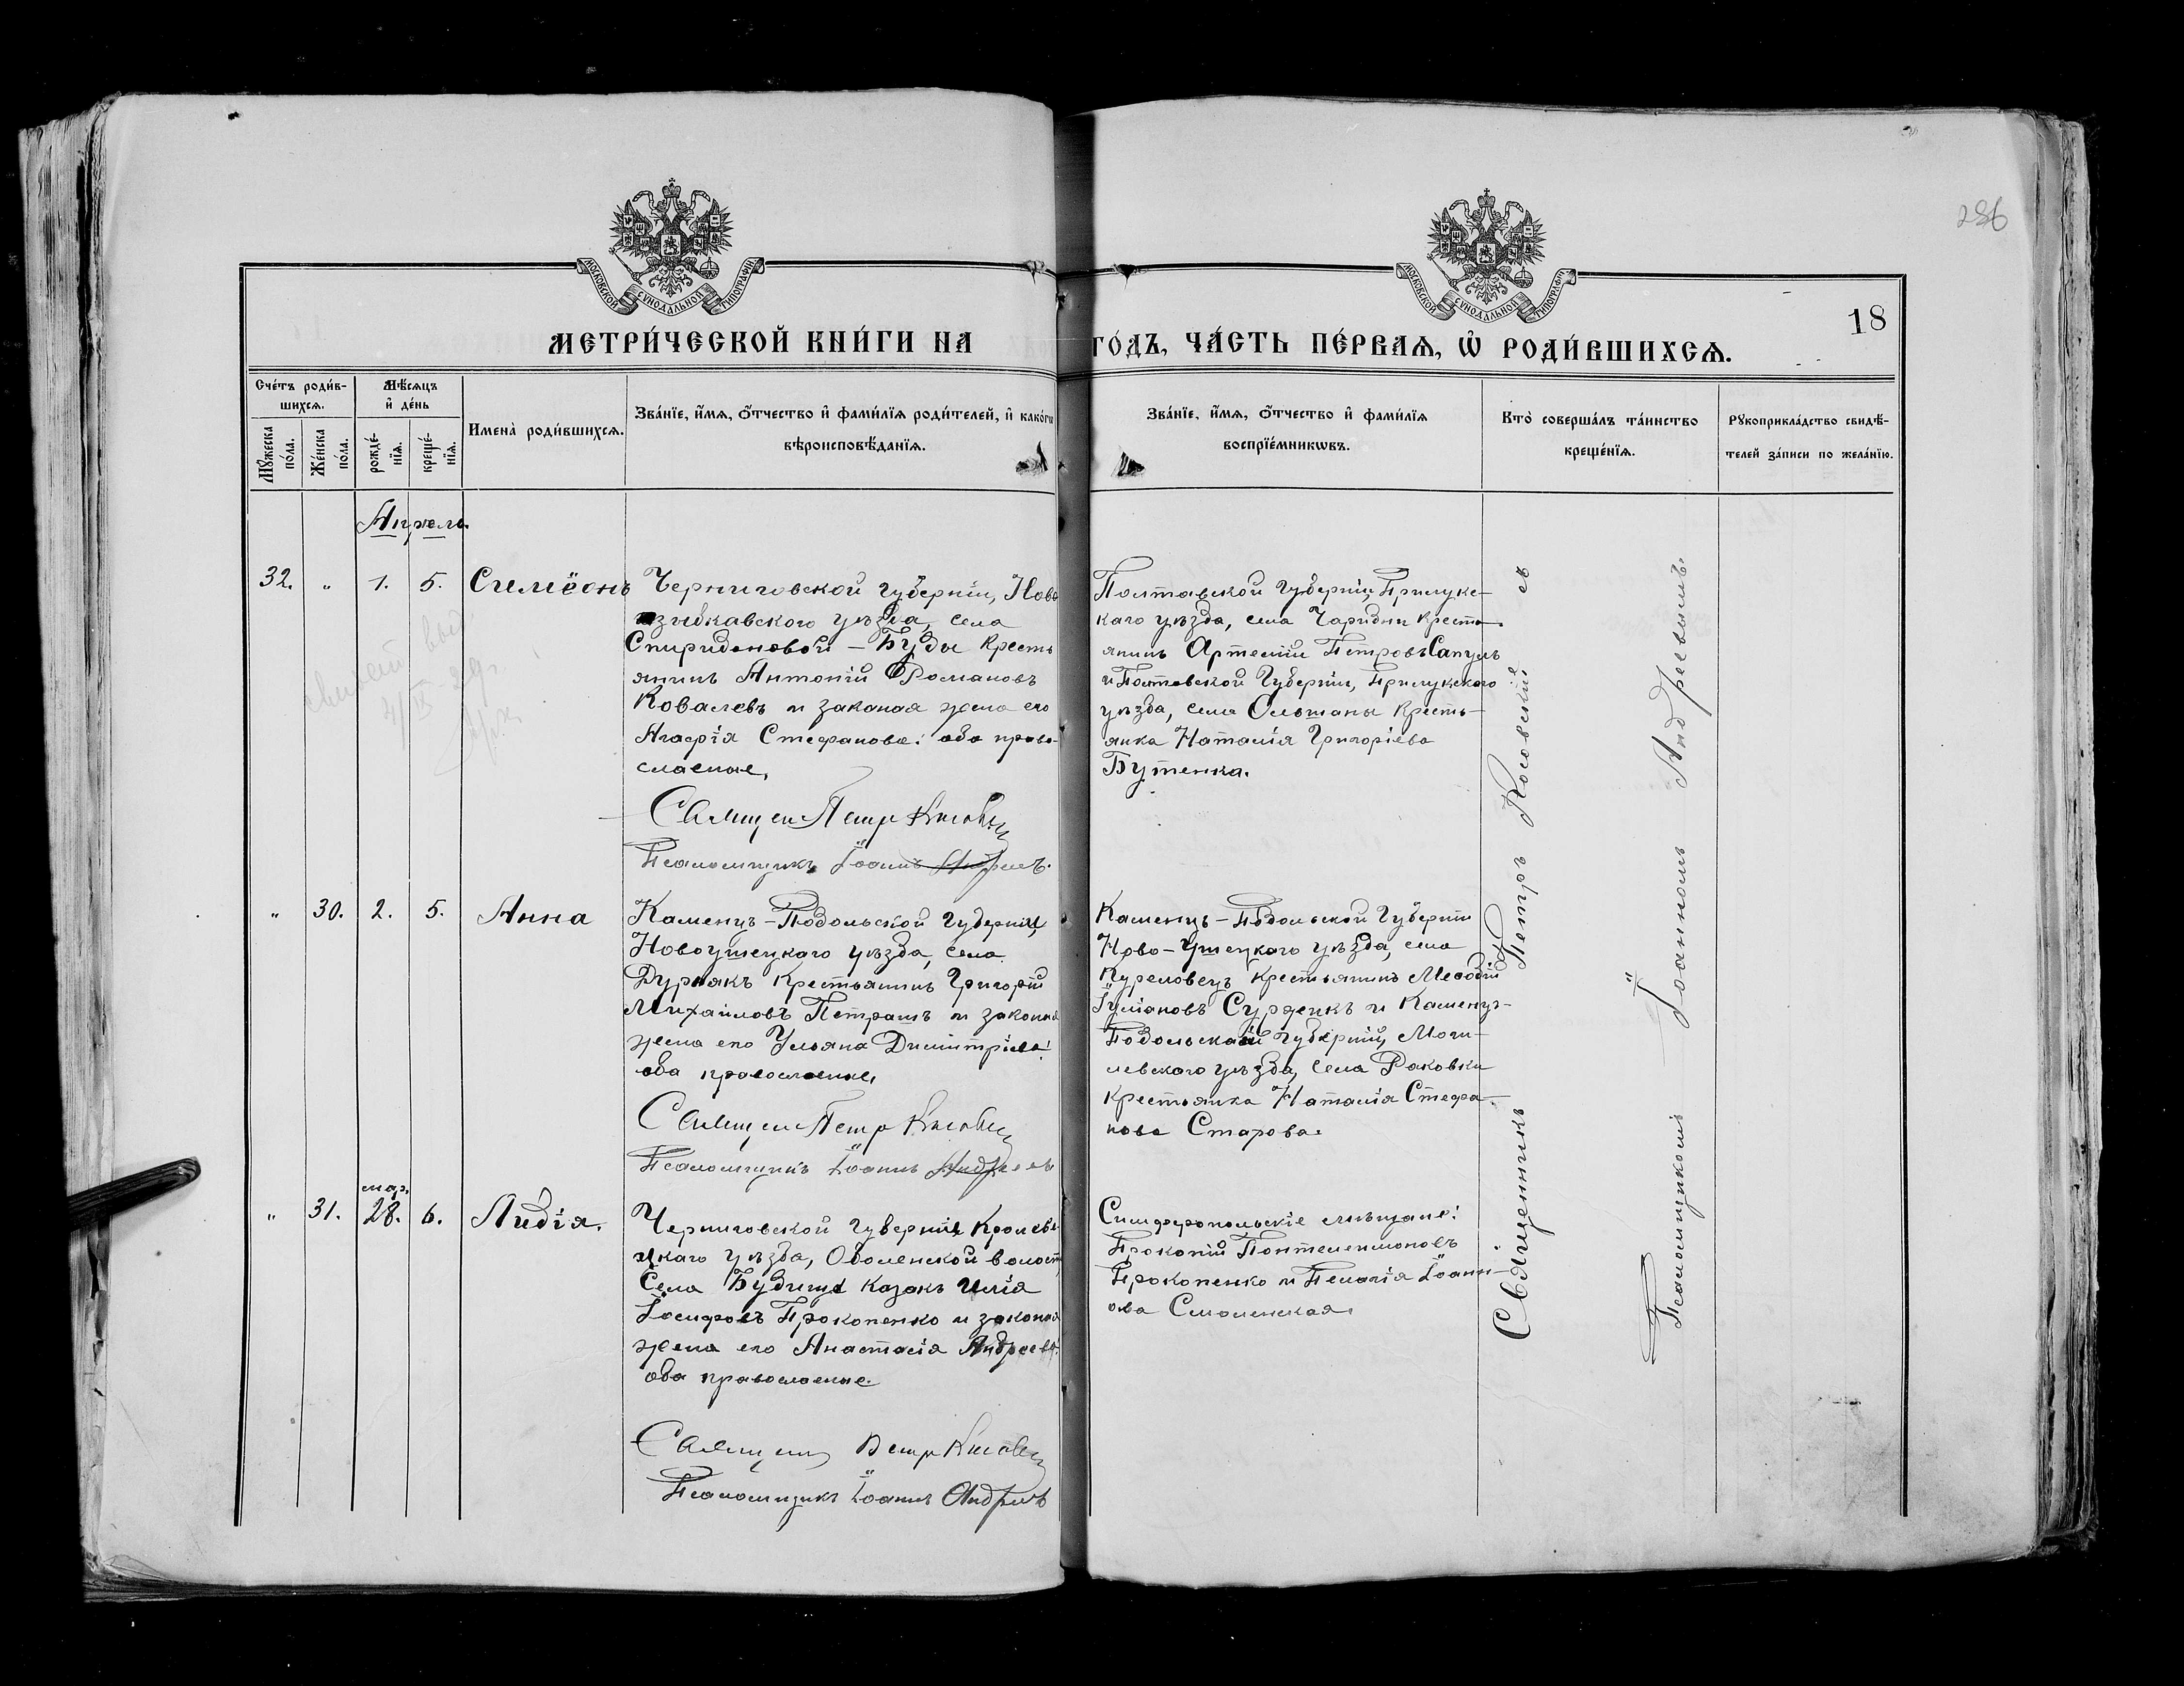 286
МОСКОВСКОЙ СѴНОДАЛЬНОЙ ТИПОГРАФІИ
МОСКОВСКОЙ СѴНОДАЛЬНОЙ ТИПОГРАФІИ
18
МЕТРИ́ЧЕСКОЙ КНИ́ГИ НА ГО́ДЪ, ЧА́СТЬ ПЕ́РВАѦ, Ѡ҆ РОДИ́ВШИХСѦ.
Сче́тъ роди́в-
шихсѧ.
Мѣ́сѧцъ
и҆ де́нь
Мꙋ́жеска
по́ла.
Же́нска
по́ла.
рожде́-
нїѧ.
креще́-
нїѧ.
Имена̀ роди́вшихсѧ.
Зва́нїе, и҆́мѧ, ѻ҆́тчество и҆ фами́лїѧ роди́телей, и҆ како́гѡ
вѣроисповѣ́данїѧ.
Зва́нїе, и҆́мѧ, ѻ҆́тчество и҆ фами́лїѧ
воспрїе́мникѡвъ.
Кто̀ соверша́лъ та́инство
креще́нїѧ.
Рꙋкоприкла́дство свидѣ́-
телей за́писи по жела́нїю.
Апрель
32. " 1. 5. Симеонъ
Черниговской губерніи, Ново
зыбкавского уѣзда, села
Спиридоновой - Буды кресть
янинъ Антоній Романовъ
Ковалевъ и законая жена его
Агафія Стефанова: оба право-
славные,
Священ Петр
Псаломщикъ Іоаннъ Андреевъ.
Полтавской губерніи, Прилукс-
каго уѣзда, села кресть-
янинъ Артемій Петровъ Сапунъ
и Полтавской Губерніи, Прилукского
уѣзда, села Ольшаны кресть-
янка Наталія Григоріева
Бутенка.
" 30. 2. 5. Анна
Каменцъ-Подольской губерніи,
Новоушецкаго уѣзда, села
Дурнякъ крестьянинъ Григорій
Михайловъ Петрашъ и законна
жена его Ульяна Димитріева:
оба православные,
Священ Петр
Псаломщикъ Іоаннъ Андреевъ
Каменцъ-Подольской Губерніи
Ново-Ушецкаго уѣзда, села
Куреловецъ крестьянинъ Меѳодій
и Каменцъ-
Подольской Губерніи, Моги-
левского уѣзда, села Раковки
крестьянка Наталія Стефа-
нова Старова.
" 31. мар. 28. 6. Лидія.
Черниговской губерніи Кролеве-
цкаго уѣзда, Оболенской волост
Села Будища казакъ Илія
Іосифовъ Прокопенко и законна
жена его Анастасія Андреева:
оба православные.
Священ Петр
Псаломщикъ Іоаннъ Андреевъ
Симферопольскіе мѣщане:
Прокопій Пантелеимоновъ
Прокопенко и Пелагія Іоанн-
ова Смоленская.
Священникъ Петръ съ
Псаломщикомъ Іоанномъ Андреевымъ.